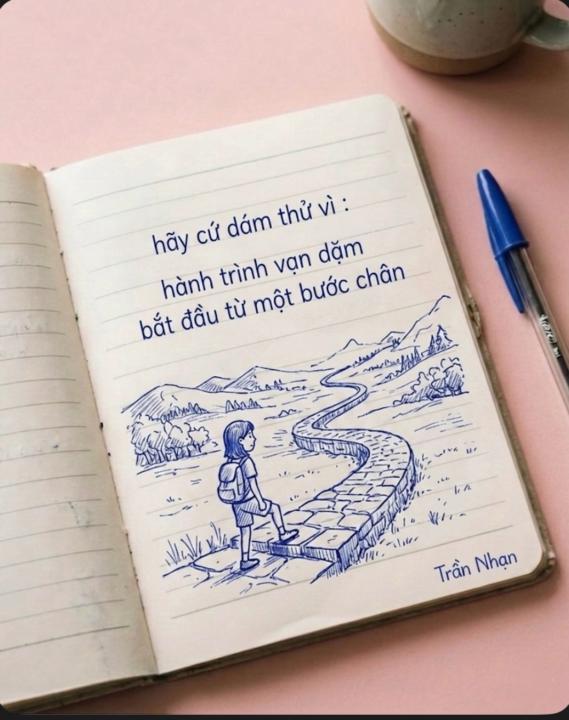 hãy cứ dám thử vì :
hành trình vạn dặm
bắt đầu từ một bước chân
Trần Nhạn